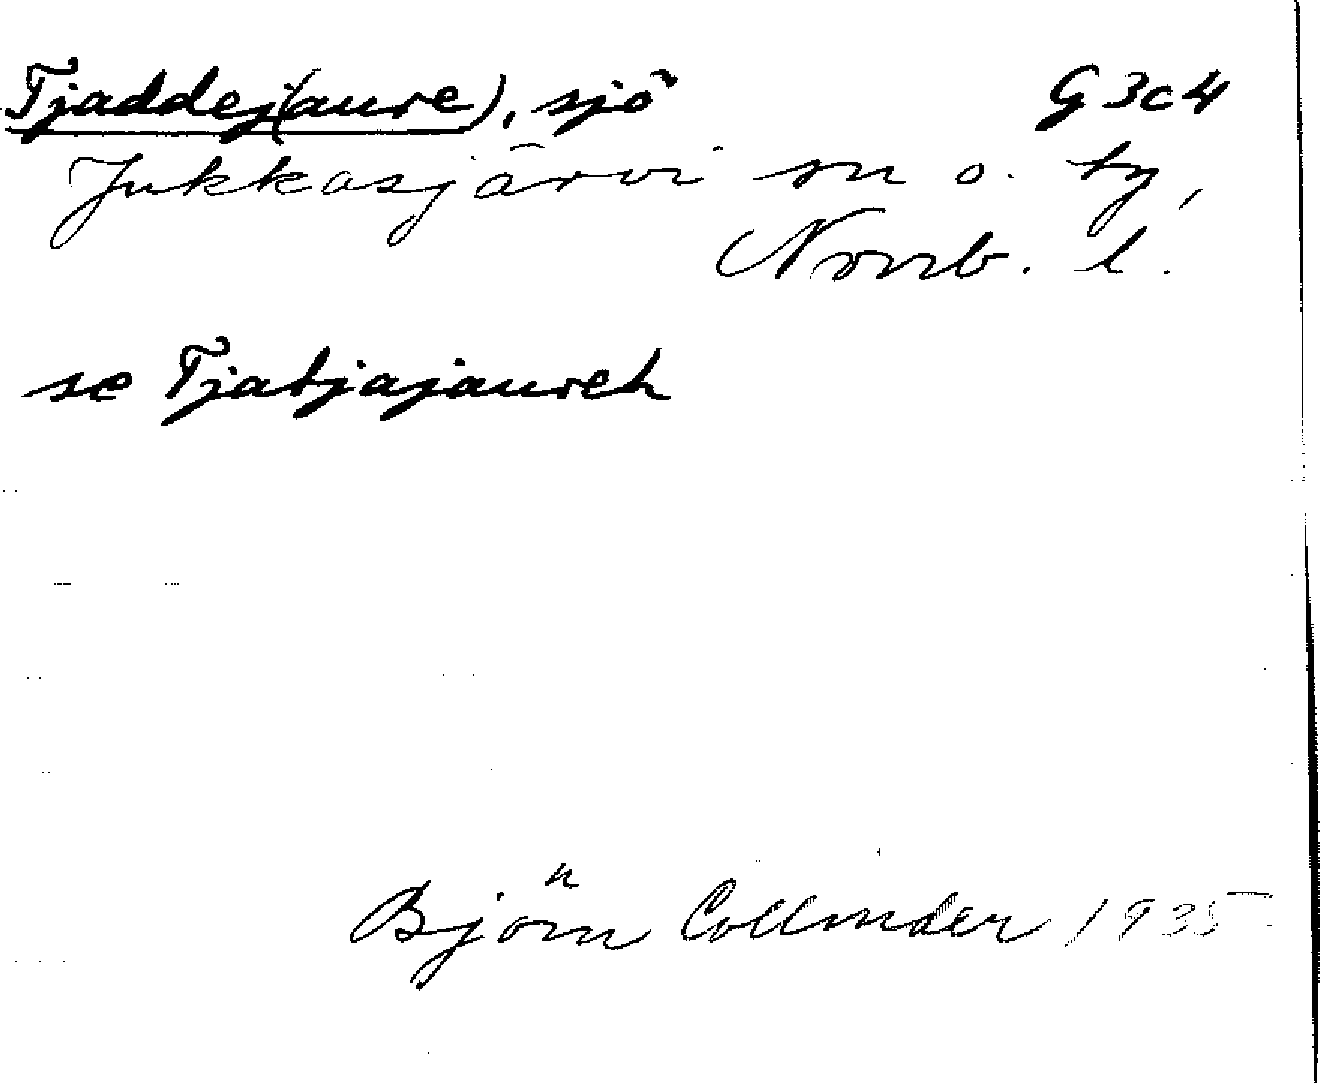 Tjaddej(aure), sjö G3c4
Jukkasjärvi sn o. ty,
Norrb. l.
se Tjatjajaureh
Björn Collinder 1935